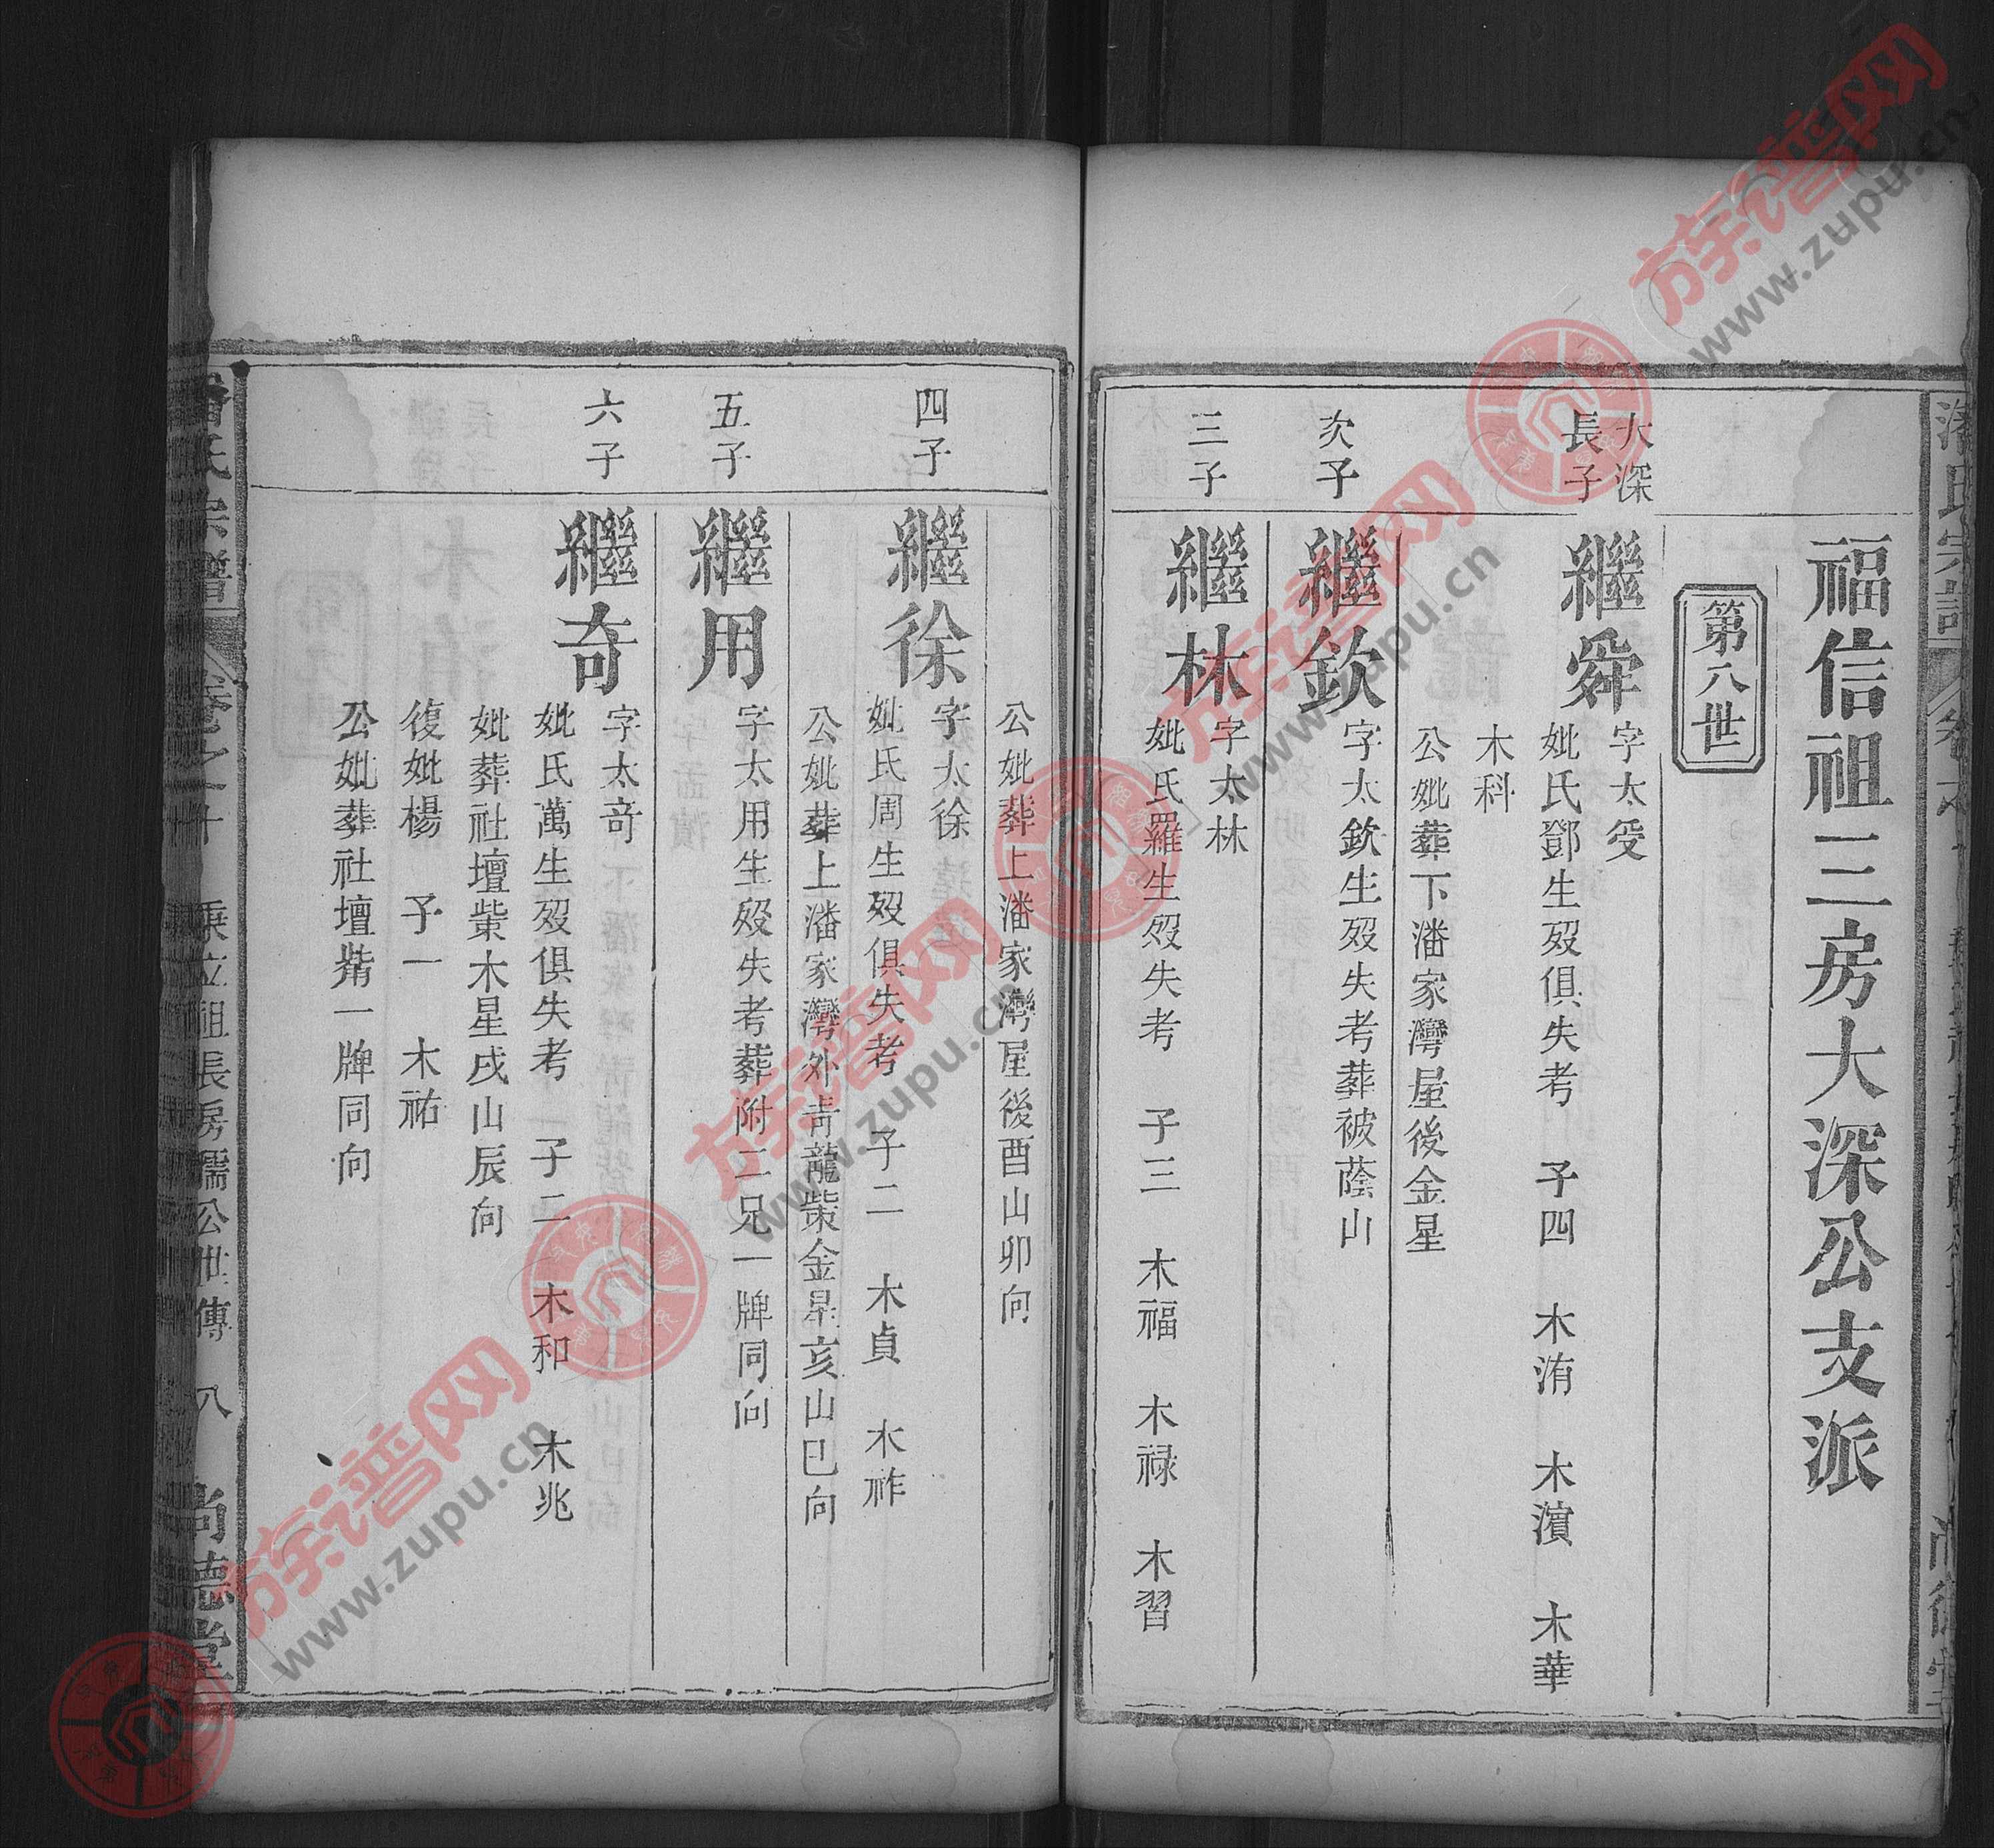 福信祖三房大深公支派
第八世
大深
長子
繼舜
字太受
妣氏鄧生歿俱失考 子四 木洧 木濱 木華
木科
公妣葬下潘家灣屋後金星
次子
繼欽
字太欽生歿失考葬被蔭山
三子
繼林
字太林
妣氏羅生歿失考 子三 木福 木祿 木習
公妣葬上潘家灣屋後酉山卯向
四子
繼徐
字太徐
妣氏周生歿俱失考 子二 木貞 木祚
公妣葬上潘家灣外青龍柴金星亥山巳向
五子
繼用
字太用生歿失考葬附二兄一牌同向
六子
繼奇
字太奇
妣氏萬生歿俱失考 子二 木和 木兆
妣葬社壇柴木星戌山辰向
復妣楊 子一 木祐
公妣葬社壇觜一牌同向
潘氏宗譜 卷之十 秉立祖長房孺公世傳 八 尚德堂
族谱网
www.zupu.cn
族谱网
www.zupu.cn
族谱网
www.zupu.cn
族谱网
www.zupu.cn